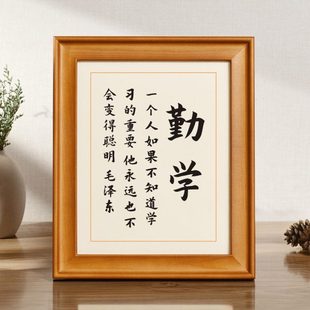 勤学
一个人如果不知道学
习的重要他永远也不
会变得聪明 毛泽东